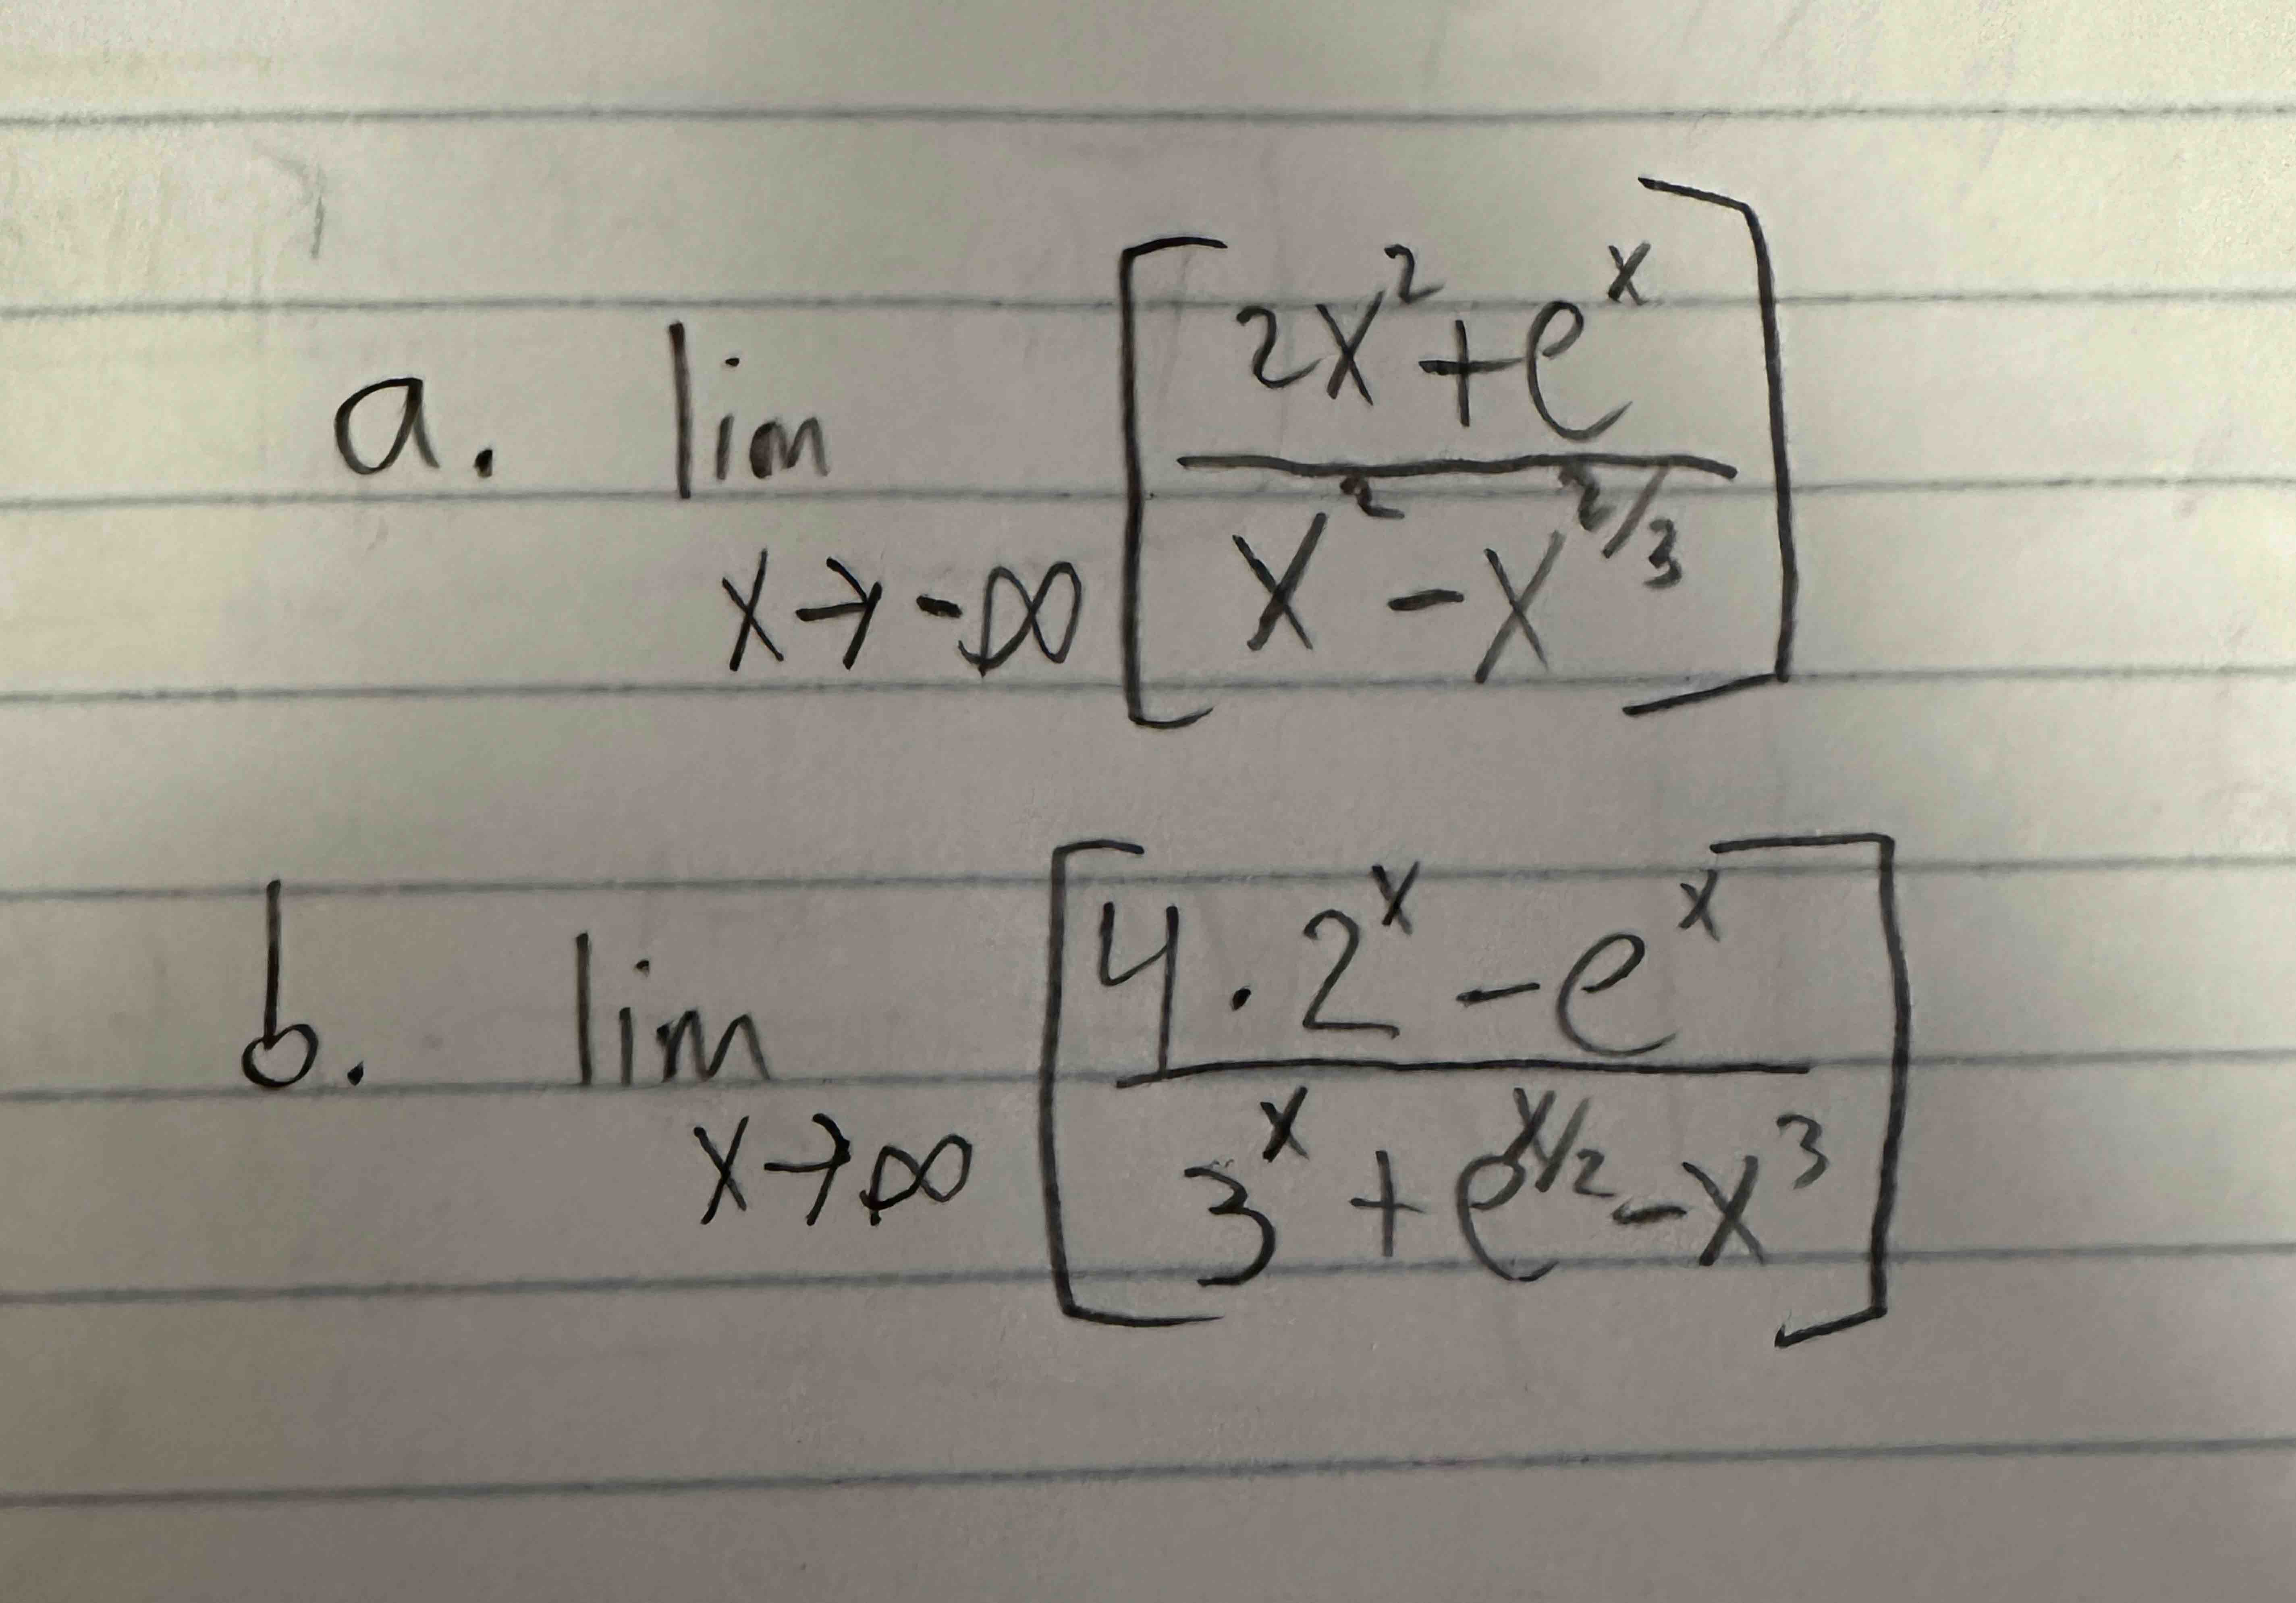 a. lim x→-∞ [(2x² + eˣ)/(x² - x^(2/3))]
b. lim x→∞ [(4·2ˣ - eˣ)/(3ˣ + e^(x/2) - x³)]